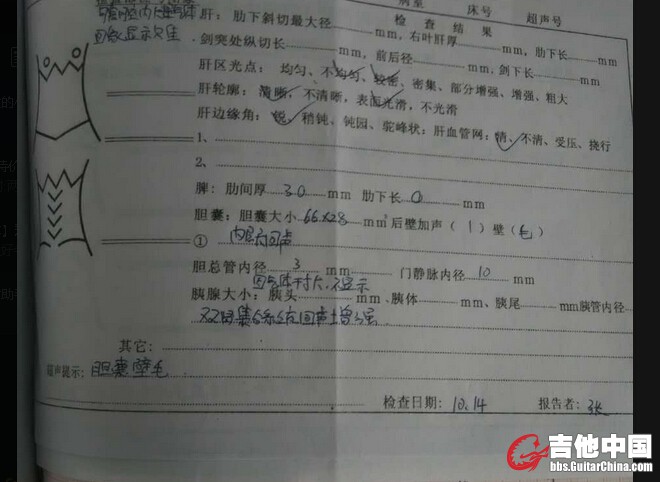 病室 床号 超声号
检查结果
肠腔内大量气体
图象显示欠佳
肝：肋下斜切最大径 mm，右叶肝厚 mm，肋下长
剑突处纵切长 mm，前后径 mm，剑下长
肝区光点：均匀、不均匀、较密、密集、部分增强、增强、粗大
肝轮廓：清晰，不清晰，表面光滑，不光滑
肝边缘角：锐，稍钝、钝园、驼峰状：肝血管网：清、不清、受压、挠行
1、
2、
脾：肋间厚 30 mm 肋下长 0 mm
胆囊：胆囊大小 66×28 mm² 后壁加声（1）壁（毛）
① 内回声
胆总管内径 3 mm 门静脉内径 10 mm
因气体干扰、不显示
胰腺大小：胰头 mm、胰体 mm、胰尾 mm胰管内径
双肾集合系统回声增强
其它：
超声提示：胆囊壁毛
检查日期：10.14 报告者：张
吉他中国
bbs.GuitarChina.com